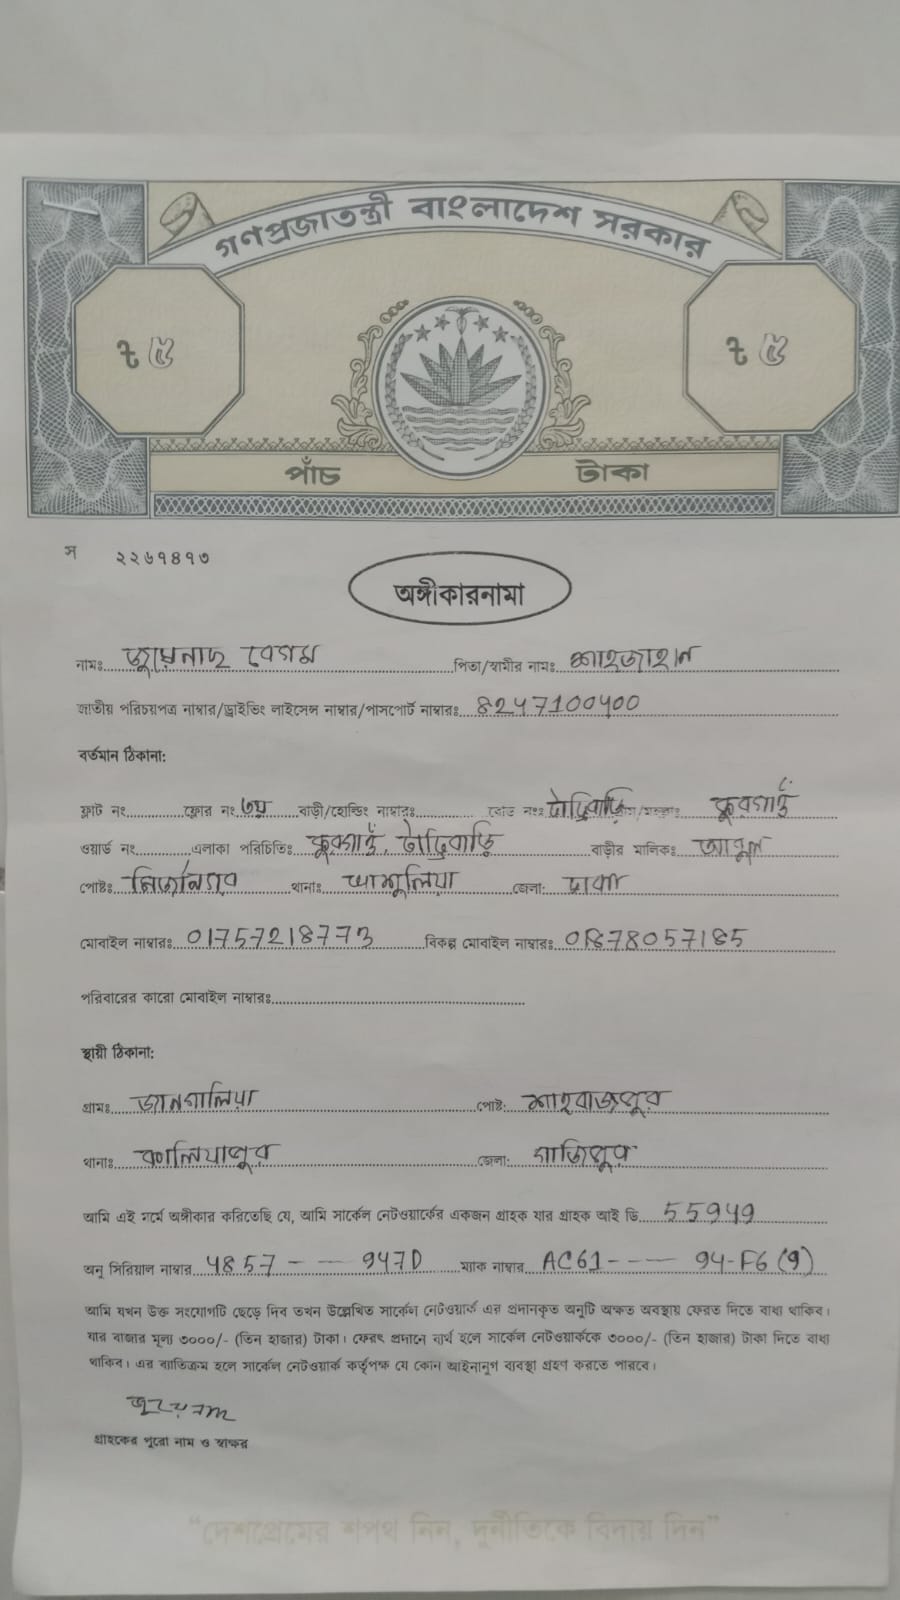 গণপ্রজাতন্ত্রী বাংলাদেশ সরকার
৳ ৫ ৳ ৫
পাঁচ টাকা
স ২২৬৭৪৭৩
অঙ্গীকারনামা
নামঃ বেগম পিতা/স্বামীর নামঃ শাহজাহান
জাতীয় পরিচয়পত্র নাম্বার/ড্রাইভিং লাইসেন্স নাম্বার/পাসপোর্ট নাম্বারঃ
বর্তমান ঠিকানা:
ফ্লাট নং ফ্লোর নং ৩য় বাড়ী/হোল্ডিং নাম্বারঃ রোড নংঃ
ওয়ার্ড নং এলাকা পরিচিতিঃ বাড়ীর মালিকঃ
পোষ্টঃ থানাঃ আশুলিয়া জেলা: ঢাকা
মোবাইল নাম্বারঃ 01757218773 বিকল্প মোবাইল নাম্বারঃ 01878057185
পরিবারের কারো মোবাইল নাম্বারঃ
স্থায়ী ঠিকানা:
গ্রামঃ জানগালিয়া পোষ্ট: শাহবাজপুর
থানাঃ কালিয়াপুর জেলা: গাজিপুর
আমি এই মর্মে অঙ্গীকার করিতেছি যে, আমি সার্কেল নেটওয়ার্কের একজন গ্রাহক যার গ্রাহক আই ডি 55949
অনু সিরিয়াল নাম্বার 4857 - — 947D ম্যাক নাম্বার AC61 - — 94-F6 (9)
আমি যখন উক্ত সংযোগটি ছেড়ে দিব তখন উল্লেখিত সার্কেল নেটওয়ার্ক এর প্রদানকৃত অনুটি অক্ষত অবস্থায় ফেরত দিতে বাধ্য থাকিব।
যার বাজার মূল্য ৩০০০/- (তিন হাজার) টাকা। ফেরৎ প্রদানে ব্যর্থ হলে সার্কেল নেটওয়ার্ককে ৩০০০/- (তিন হাজার) টাকা দিতে বাধ্য
থাকিব। এর ব্যতিক্রম হলে সার্কেল নেটওয়ার্ক কর্তৃপক্ষ যে কোন আইনানুগ ব্যবস্থা গ্রহণ করতে পারবে।
গ্রাহকের পুরো নাম ও স্বাক্ষর
"দেশপ্রেমের শপথ নিন, দুর্নীতিকে বিদায় দিন"